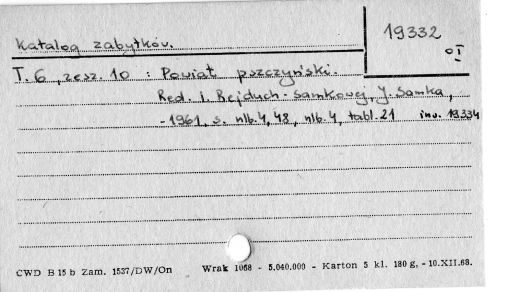 Katalog zabytków.
19332
o I
T. 6, zesz. 10 : Powiat pszczyński.
Red. I. Rejduch-Samkowej, J. Samka,
- 1961, s. nlb. 4, 48, nlb. 4, tabl. 21 inv. 19334
CWD B 15 b Zam. 1537/DW/On Wrak 1068 - 5.040.000 - Karton 5 kl. 180 g, - 10.XII.68.